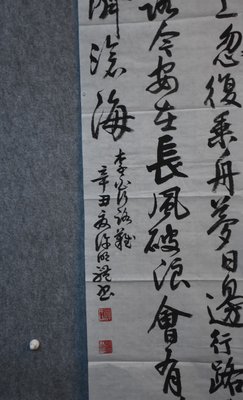 忽復乘舟夢日邊行路
路今安在長風破浪會有
濟滄海
李白行路難
辛丑